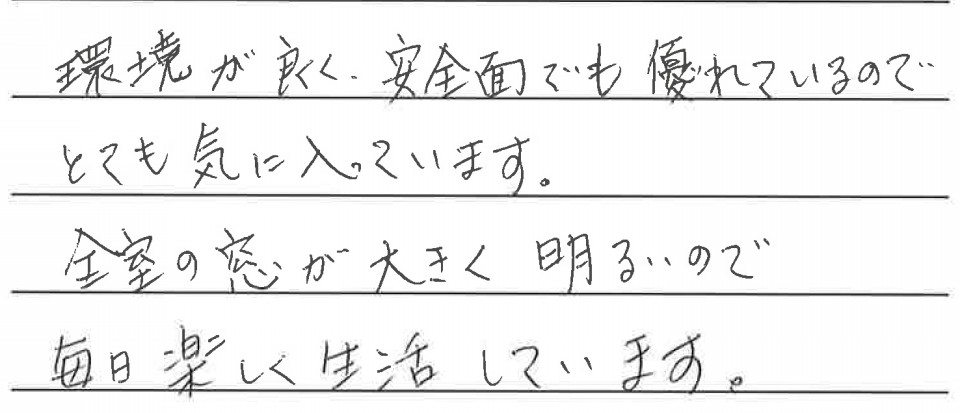 環境が良く、安全面でも優れているので
とても気に入っています。
全室の窓が大きく明るいので
毎日楽しく生活しています。